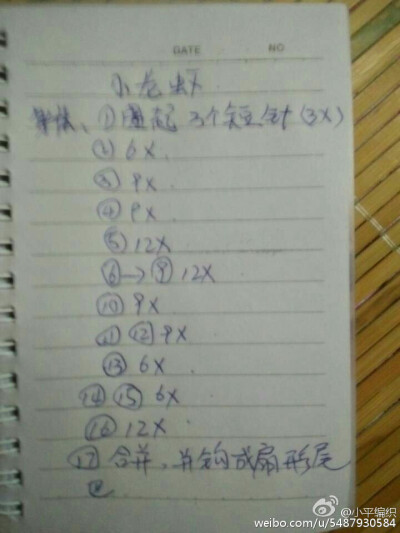 DATE NO
小龙虾
身体、①圈起 3个短针(3X)
② 6X.
③ 9X.
④ 9X.
⑤ 12X
⑥→⑨ 12X
⑩ 9X
⑪ ⑫ 9X
⑬ 6X
⑭ ⑮ 6X
⑯ 12X.
⑰ 合并、并钩成扇形尾
巴
@小平编织
weibo.com/u/5487930584